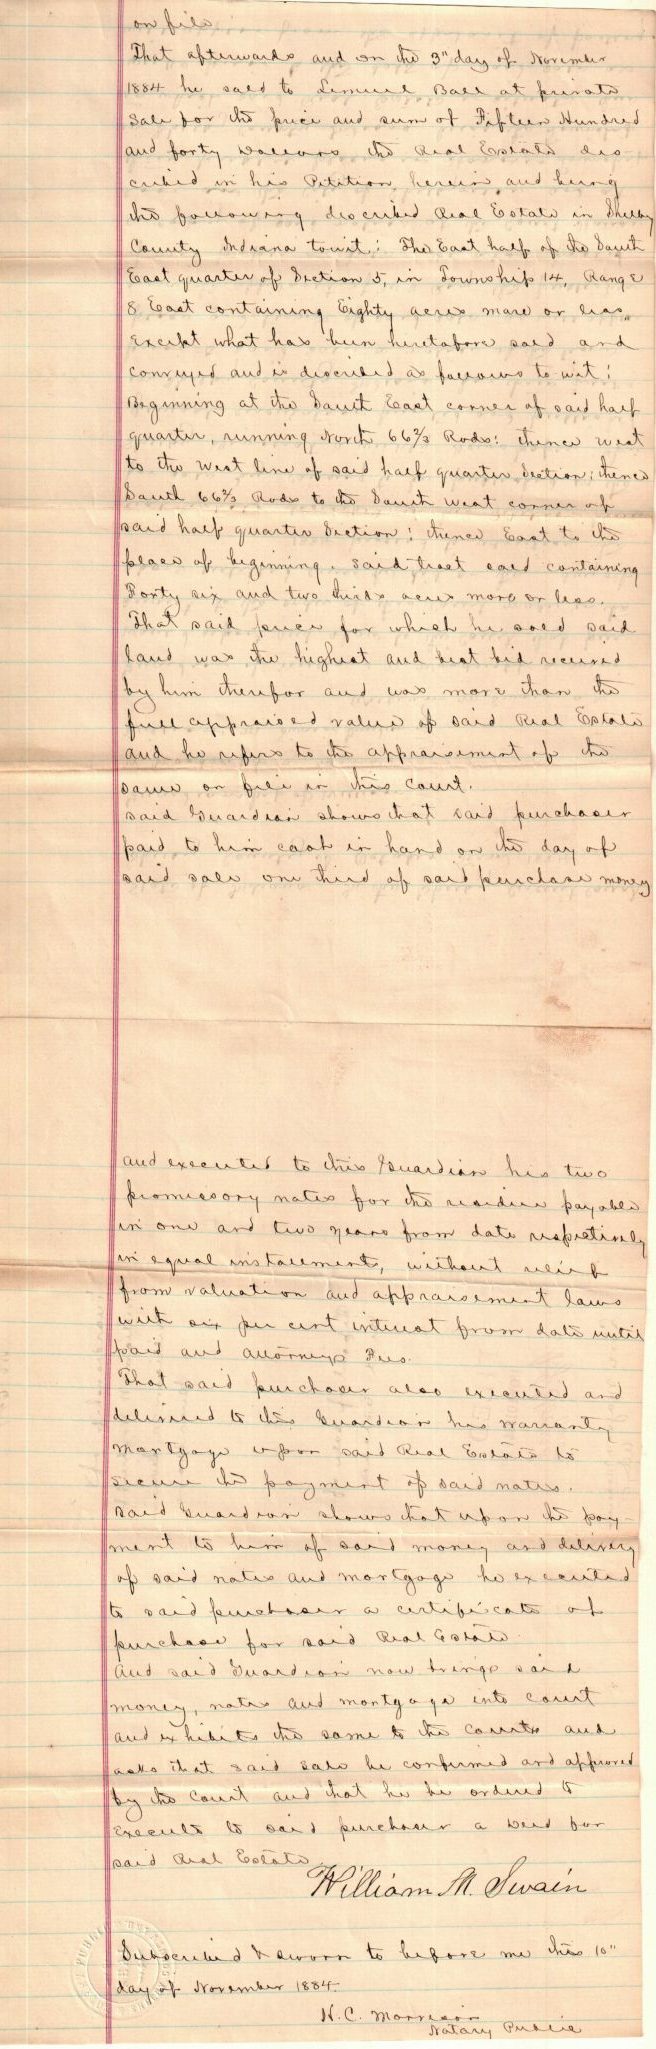 on file
That afterwards and on the 3" day of November
1884 he sold to Lemuel Ball at private
Sale for the price and sum of Fifteen Hundred
and forty Dollars the Real Estate des
cribed in his Petition herein and being
the following described Real Estate in Shelby
County Indiana towit: The East half of the South
East quarter of Section 5, in Township 14, Range
8 East containing Eighty acres more or less,
Except what has been heretofore sold and
conveyed and is described as follows to wit:
Beginning at the South East corner of said half
quarter, running North 66 2/3 Rods: thence west
to the west line of said half quarter Section; thence
South 66 2/3 Rods to the South west corner of
said half quarter Section: thence East to the
place of beginning. Said tract sold containing
Forty six and two thirds acres more or less.
That said price for which he sold said
land was the highest and best bid received
by him therefor and was more than the
full appraised value of said Real Estate
and he refers to the appraisement of the
same on file in this court.
Said Guardian shows that said purchaser
paid to him cash in hand on the day of
said sale one third of said purchase money
and executed to this Guardian his two
promissory notes for the residue payable
in one and two years from date respectively
in equal instalments, without relief
from valuation and appraisement laws
with six per cent interest from date until
paid and attorneys Fees.
That said purchaser also executed and
delivered to this Guardian his warranty
mortgage upon said Real Estate to
secure the payment of said notes.
Said Guardian shows that upon the pay-
ment to him of said money and delivery
of said notes and mortgage he executed
to said purchaser a certificate of
purchase for said Real Estate
And said Guardian now brings said
money, notes and mortgage into court
and exhibits the same to the court and
asks that said sale be confirmed and approved
by the Court and that he be ordered to
execute to said purchaser a Deed for
said Real Estate
William M. Swain
Subscribed & sworn to before me this 10"
day of November 1884.
H. C. Morrison
Notary Public